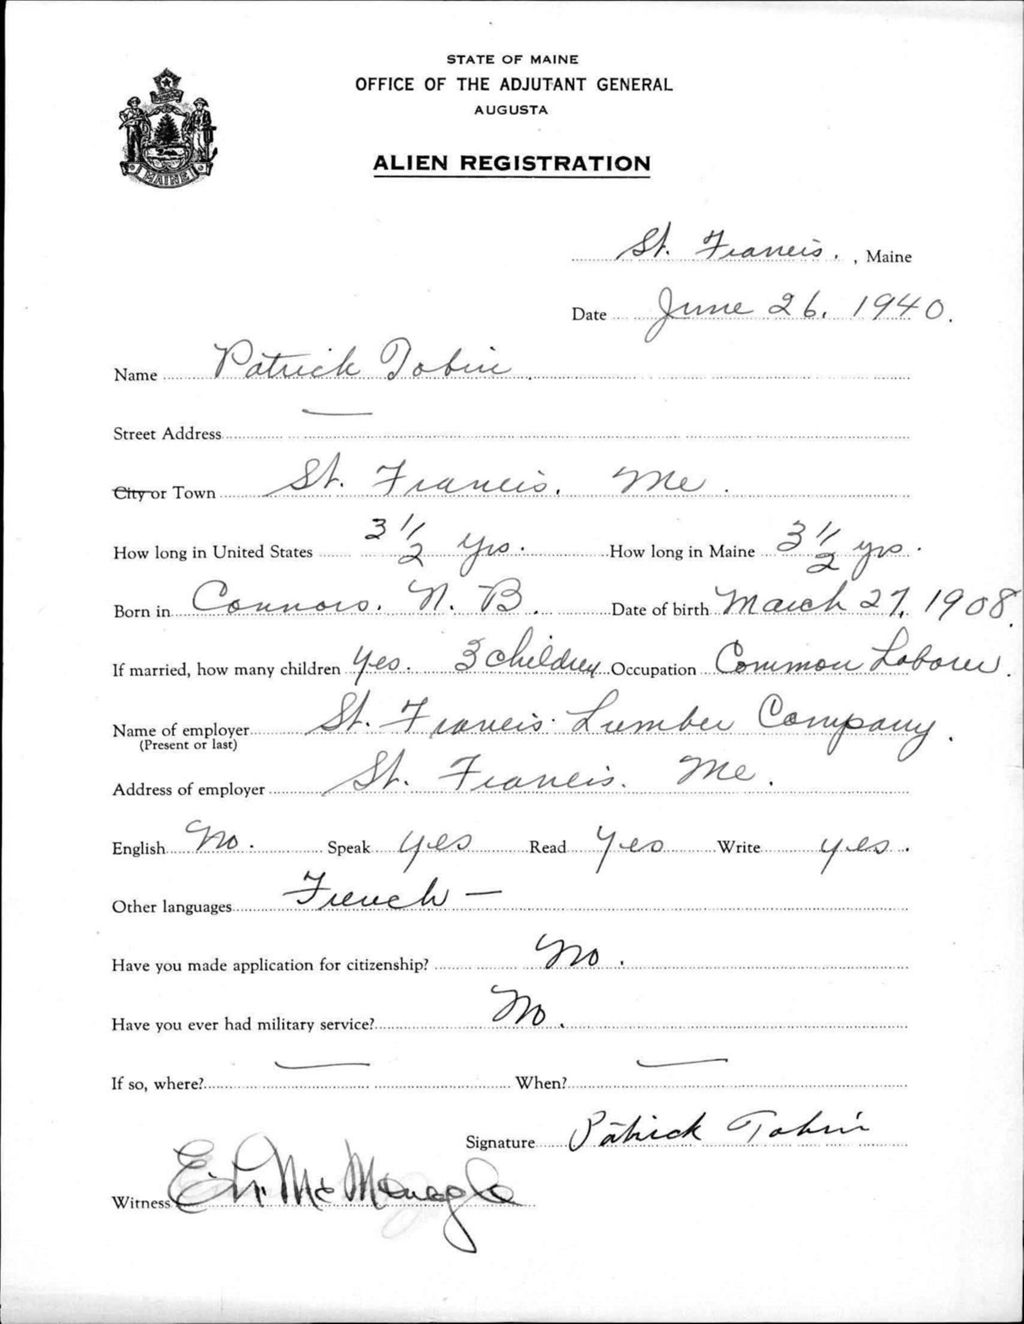 STATE OF MAINE
OFFICE OF THE ADJUTANT GENERAL
AUGUSTA
ALIEN REGISTRATION
MAINE
St. Francis. , Maine
Date June 26, 1940.
Name Patrick Tobin
Street Address —
City or Town St. Francis, Me.
How long in United States 3 1/2 yrs. How long in Maine 3 1/2 yrs.
Born in Connors, N. B. Date of birth March 27, 1908.
If married, how many children Yes. 3 children Occupation Common Laborer.
Name of employer St. Francis Lumber Company.
(Present or last)
Address of employer St. Francis. Me.
English No. Speak Yes Read Yes Write yes.
Other languages French —
Have you made application for citizenship? No.
Have you ever had military service? No.
If so, where? — When? —
Signature Patrick Tobin
Witness McMonagle